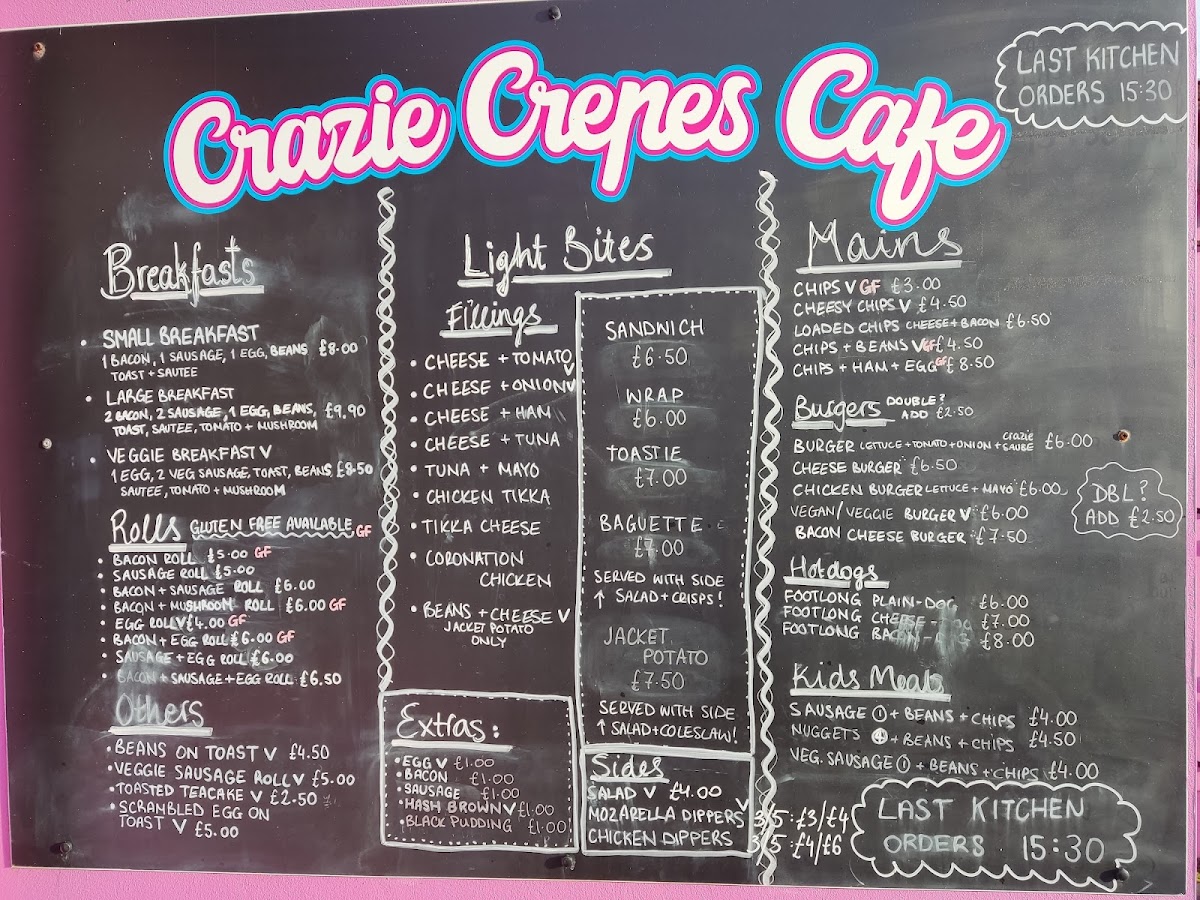 Crazie Crepes Cafe
LAST KITCHEN
ORDERS 15:30
Breakfasts
• SMALL BREAKFAST
1 BACON, 1 SAUSAGE, 1 EGG, BEANS £8.00
TOAST + SAUTEE
• LARGE BREAKFAST
2 BACON, 2 SAUSAGE, 1 EGG, BEANS, £9.90
TOAST, SAUTEE, TOMATO + MUSHROOM
• VEGGIE BREAKFAST V
1 EGG, 2 VEG SAUSAGE, TOAST, BEANS £8.50
SAUTEE, TOMATO + MUSHROOM
Rolls GLUTEN FREE AVAILABLE GF
• BACON ROLL £5.00 GF
• SAUSAGE ROLL £5.00
• BACON + SAUSAGE ROLL £6.00
• BACON + MUSHROOM ROLL £6.00 GF
• EGG ROLL V £4.00 GF
• BACON + EGG ROLL £6.00 GF
• SAUSAGE + EGG ROLL £6.00
• BACON + SAUSAGE + EGG ROLL £6.50
Others
• BEANS ON TOAST V £4.50
• VEGGIE SAUSAGE ROLL V £5.00
• TOASTED TEACAKE V £2.50
• SCRAMBLED EGG ON
TOAST V £5.00
Light Bites
Fillings
• CHEESE + TOMATO V
• CHEESE + ONION V
• CHEESE + HAM
• CHEESE + TUNA
• TUNA + MAYO
• CHICKEN TIKKA
• TIKKA CHEESE
• CORONATION
CHICKEN
• BEANS + CHEESE V
JACKET POTATO
ONLY
SANDWICH
£6.50
WRAP
£6.00
TOASTIE
£7.00
BAGUETTE
£7.00
SERVED WITH SIDE
↑ SALAD + CRISPS!
JACKET
POTATO
£7.50
SERVED WITH SIDE
↑ SALAD + COLESLAW!
Extras:
• EGG V £1.00
• BACON £1.00
• SAUSAGE £1.00
• HASH BROWN V £1.00
• BLACK PUDDING £1.00
Sides
SALAD V £4.00
MOZARELLA DIPPERS V 3/5 : £3/£4
CHICKEN DIPPERS 3/5 : £4/£6
Mains
CHIPS V GF £3.00
CHEESY CHIPS V £4.50
LOADED CHIPS CHEESE + BACON £6.50
CHIPS + BEANS V GF £4.50
CHIPS + HAM + EGG GF £8.50
Burgers DOUBLE?
ADD £2.50
BURGER LETTUCE + TOMATO + ONION + CRAZIE SAUCE £6.00
CHEESE BURGER £6.50
CHICKEN BURGER LETTUCE + MAYO £6.00
VEGAN/VEGGIE BURGER V £6.00
BACON CHEESE BURGER £7.50
DBL?
ADD £2.50
Hotdogs
FOOTLONG PLAIN-DOG £6.00
FOOTLONG CHEESE-DOG £7.00
FOOTLONG BACON-DOG £8.00
Kids Meals
SAUSAGE ① + BEANS + CHIPS £4.00
NUGGETS ④ + BEANS + CHIPS £4.50
VEG. SAUSAGE ① + BEANS + CHIPS £4.00
LAST KITCHEN
ORDERS 15:30